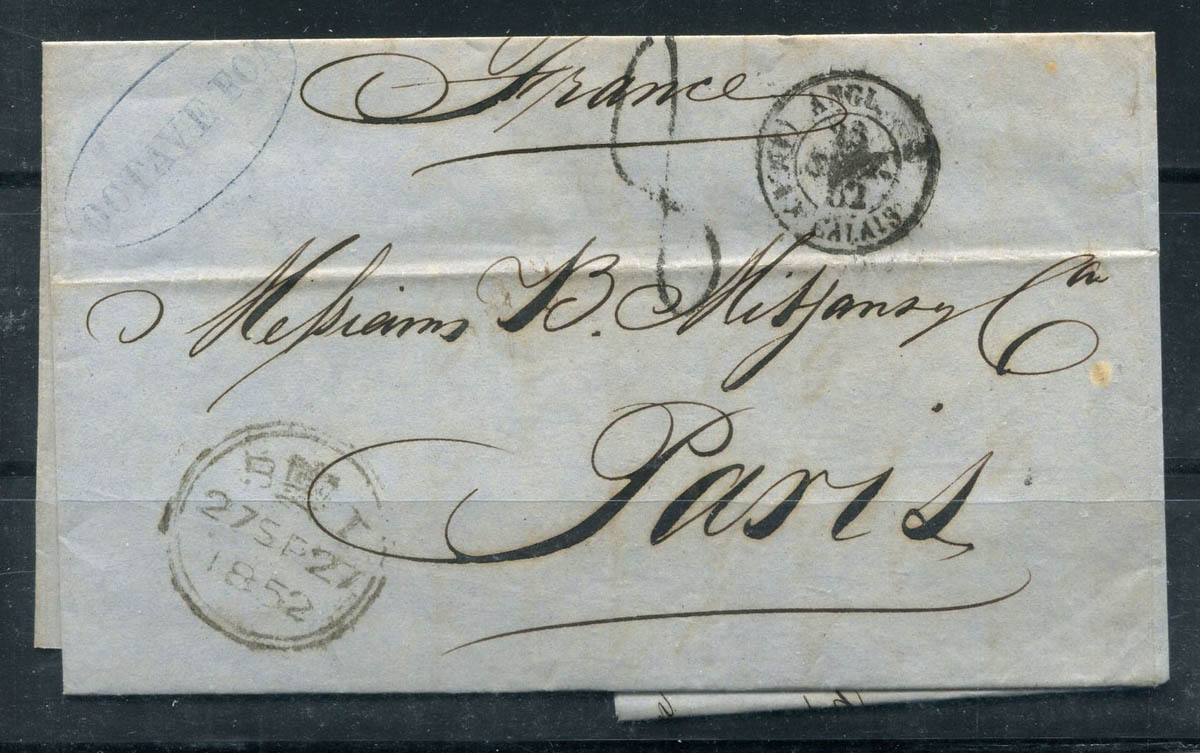 OCTAVE FO
France
ANGL.
52
CALAIS
Messieurs B. Mitjans y Cia
Paris
27 SP 27
1852